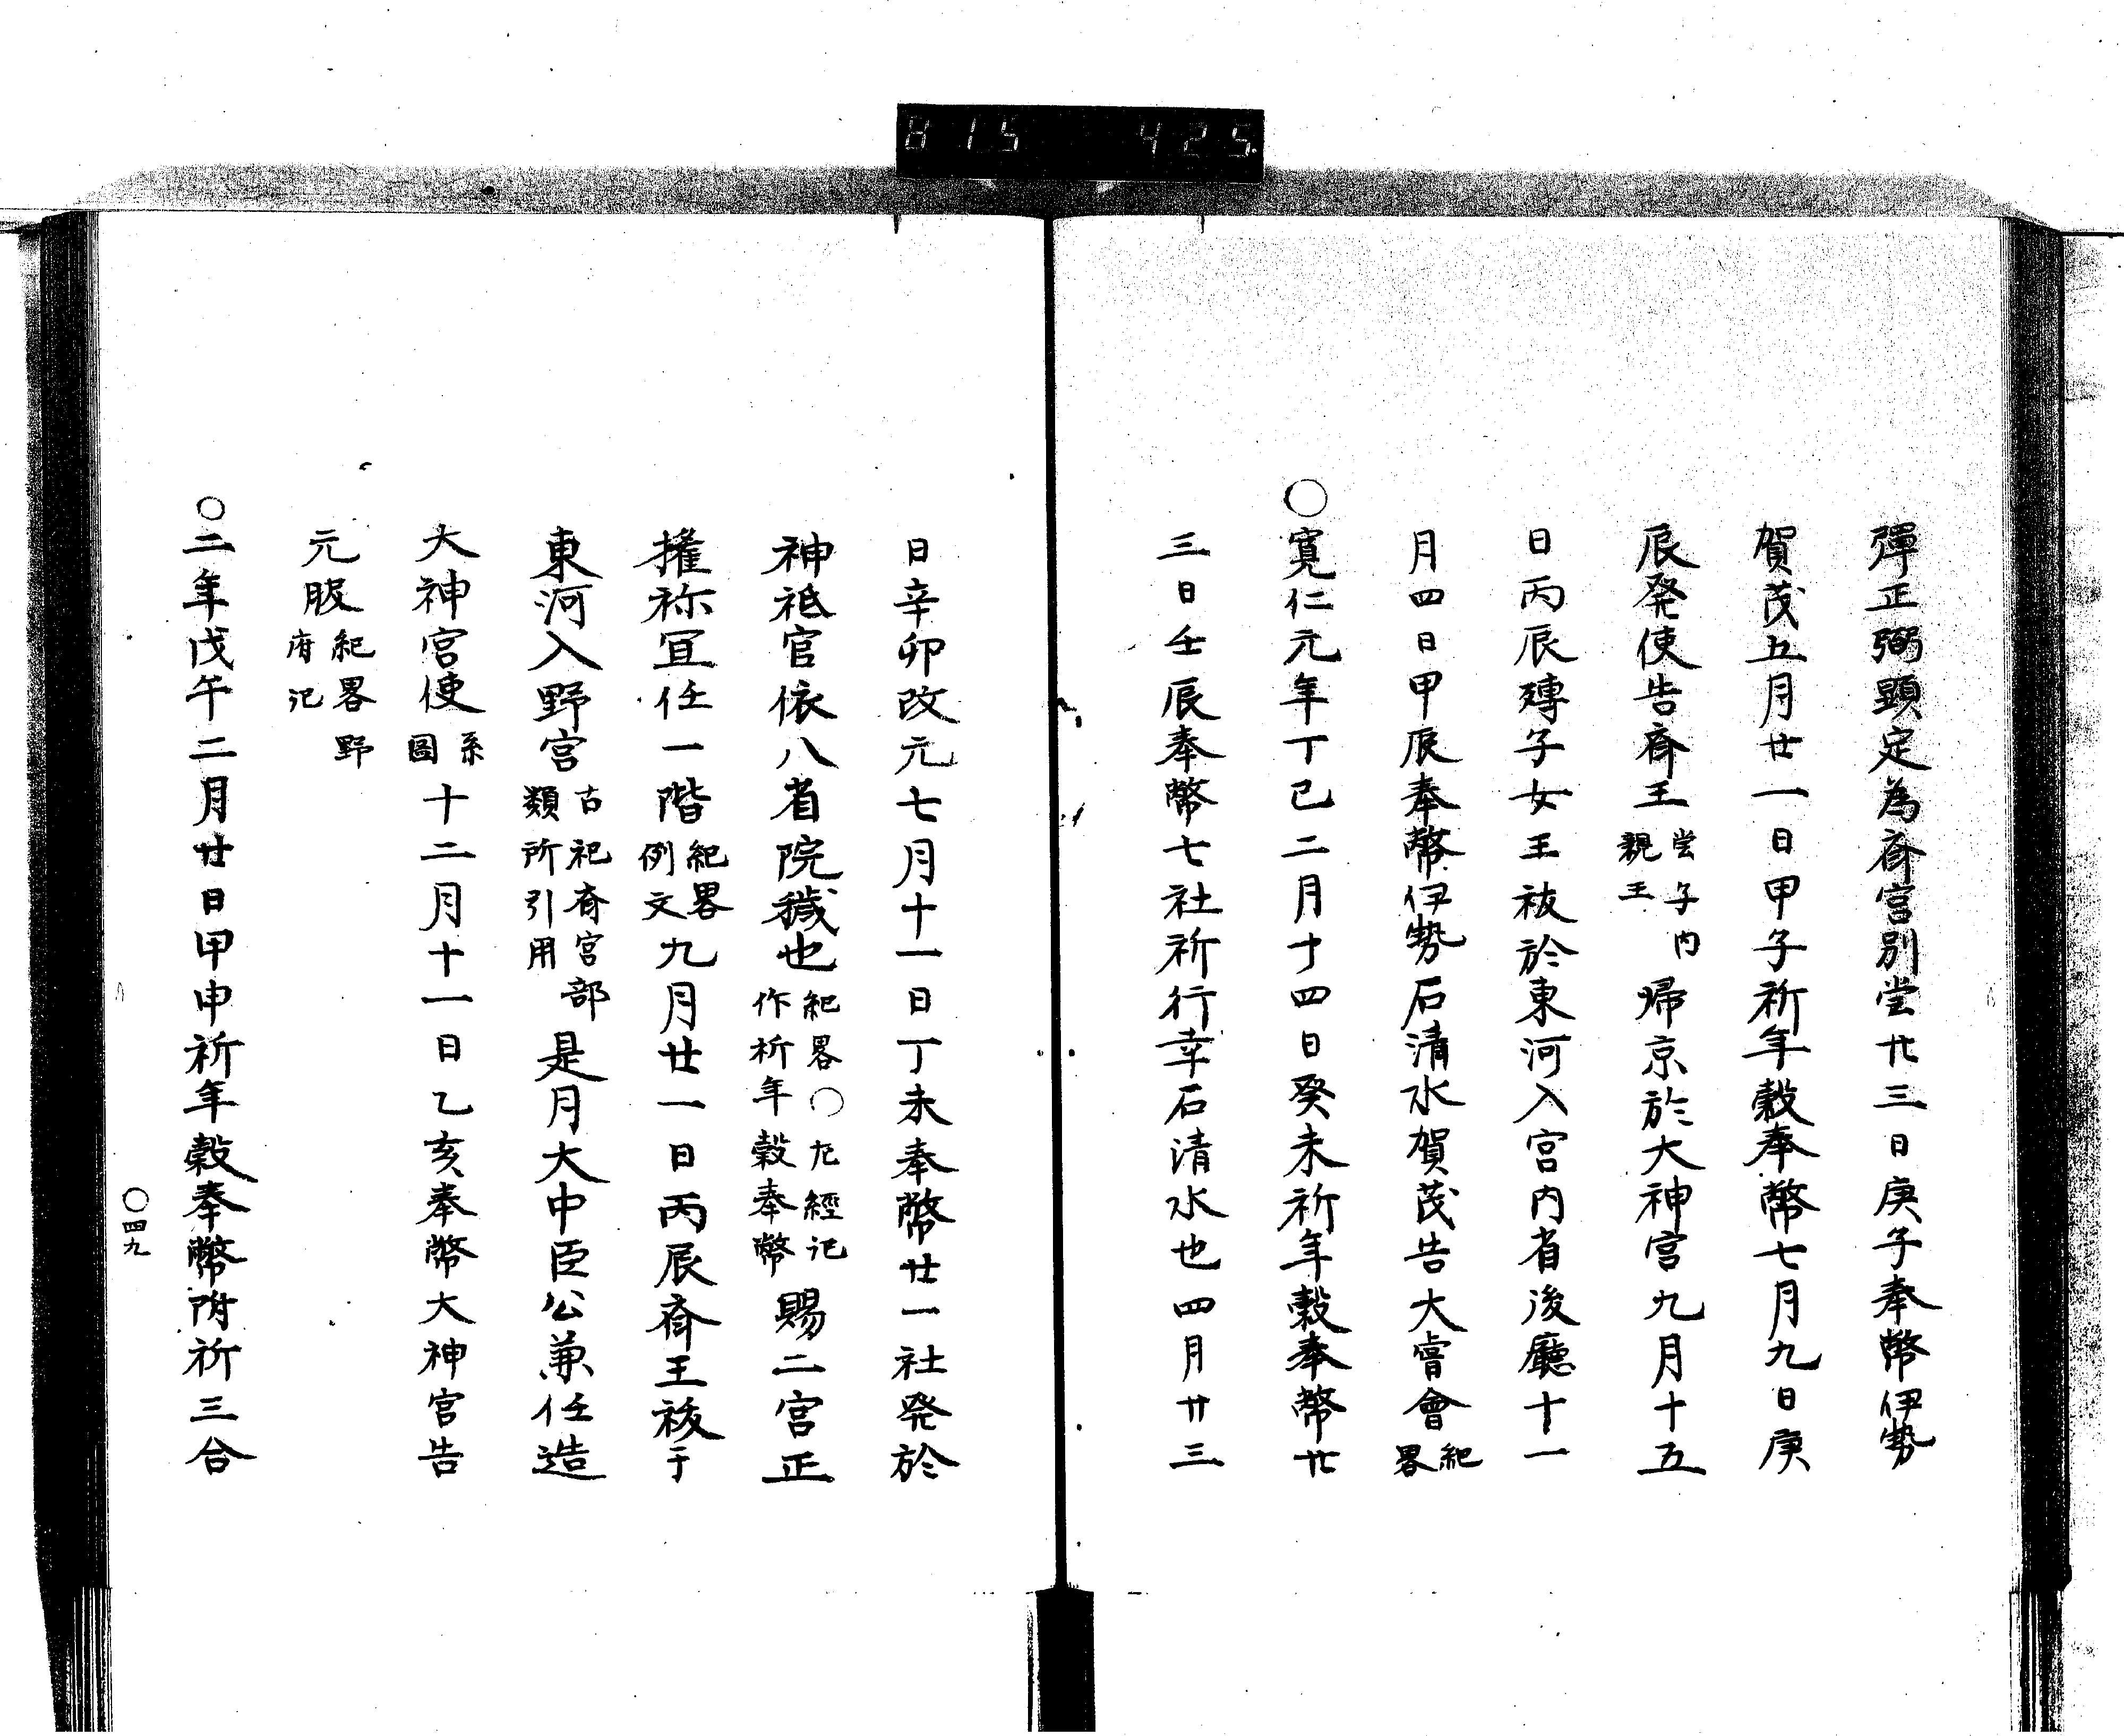 815 425
彈正弼顕定為斎宮別当廿三日庚子奉幣伊勢
賀茂五月廿一日甲子祈年穀奉幣七月九日庚
辰発使告斎王当子内親王帰京於大神宮九月十五
日丙辰嫥子女王祓於東河入宮内省後廳十一
月四日甲辰奉幣伊勢石清水賀茂告大甞會紀畧
○寛仁元年丁巳二月十四日癸未祈年穀奉幣廿
三日壬辰奉幣七社祈行幸石清水也四月廿三
日辛卯改元七月十一日丁未奉幣廿一社発於
神祗官依八省院穢也紀畧○左經记作祈年穀奉幣賜二宮正
権祢冝任一階紀畧例文九月廿一日丙辰斎王祓于
東河入野宮古祀斎宮部類所引用是月大中臣公兼任造
大神宮使系圖十二月十一日乙亥奉幣大神宮告
元服紀畧野府记
○二年戊午二月廿日甲申祈年穀奉幣附祈三合
○四九